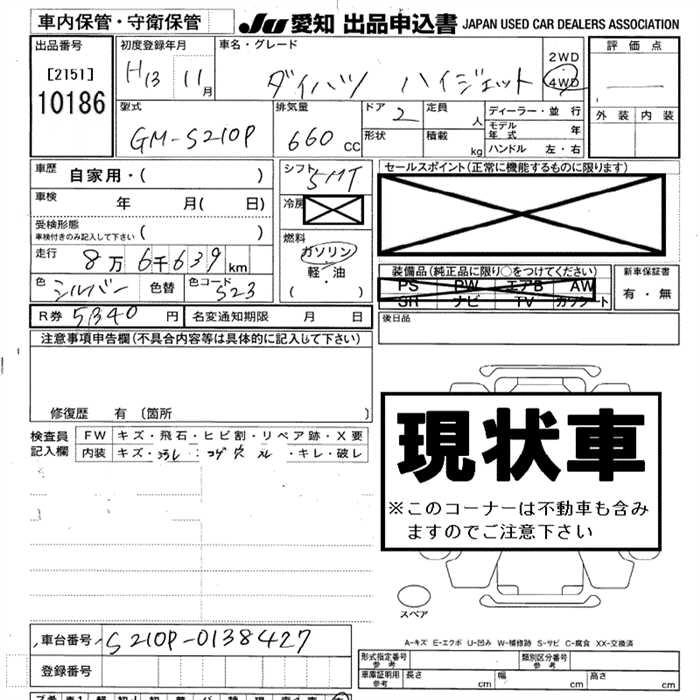 車内保管・守衛保管
JU 愛知 出品申込書 JAPAN USED CAR DEALERS ASSOCIATION
出品番号
[2151]
10186
初度登録年月
H13 11月
車名・グレード
ダイハツ ハイジェット
2WD
4WD
評価点
外装 内装
型式
GM-S210P
排気量
660 cc
ドア 2
形状
定員 人
積載 kg
ディーラー・並行
モデル年式 年
ハンドル 左・右
車歴 自家用・( )
車検 年 月( 日)
受検形態
車検付きのみ記入して下さい ( )
走行 8万6千639km
色 シルバー 色替 色コード S23
シフト 5MT
冷房
燃料
ガソリン
軽・油
( )
セールスポイント(正常に機能するものに限ります)
装備品(純正品に限り○をつけてください)
PS PW エアB AW
SR ナビ TV カワシート
新車保証書
有・無
R券 5340円 名変通知期限 月 日
後日品
注意事項申告欄(不具合内容等は具体的に記入して下さい)
修復歴 有 〔箇所 〕
検査員記入欄
FW キズ・飛石・ヒビ割・リペア跡・X要
内装 キズ・ヨゴレ・コゲ穴・スレ・キレ・破レ
現状車
※このコーナーは不動車も含み
ますのでご注意下さい
スペア
A-キズ E-エクボ U-凹み W-補修跡 S-サビ C-腐食 XX-交換済
車台番号 S210P-0138427
登録番号
形式指定番号 参考
類別区分番号 参考
車庫証明用 参考 長さ cm 幅 cm 高さ cm